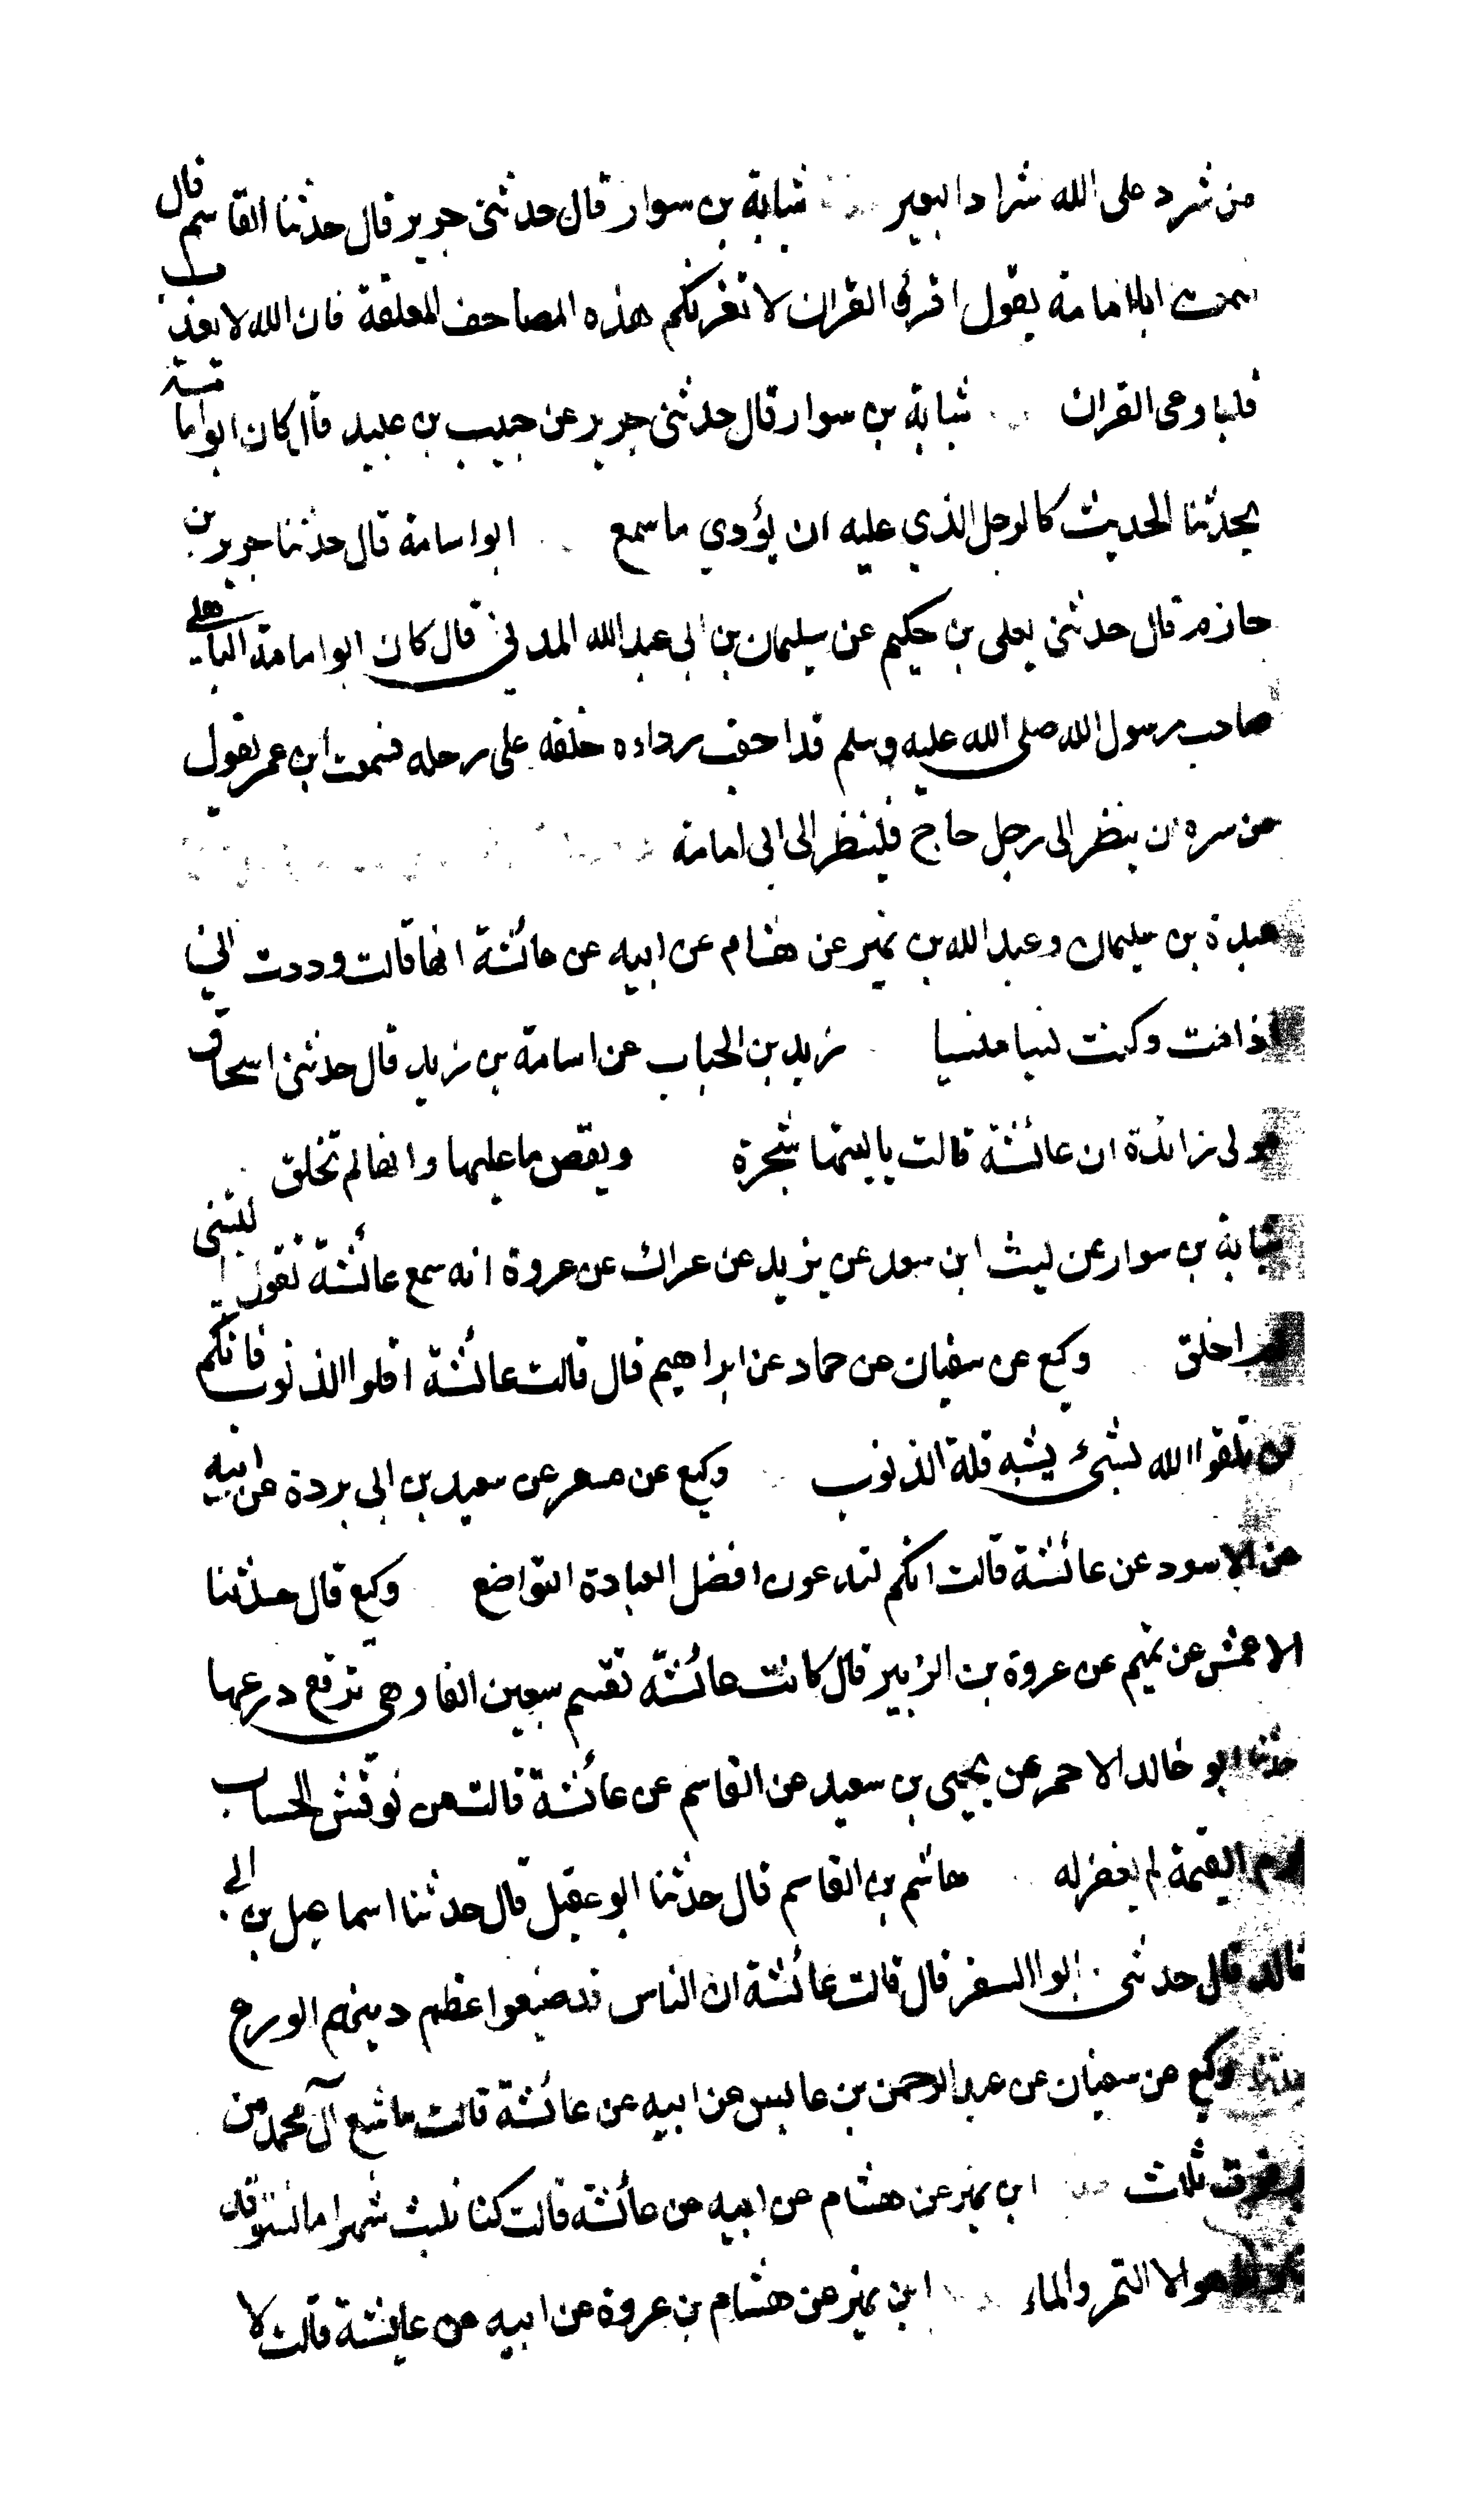 من شرد على الله شراد البعير شبابة بن سوار قال حدثنى جرير قال حدثنا القاسم قال
سمعت ابا امامة يقول اقرؤا القران لا تغرنكم هذه المصاحف المعلقة فان الله لا يعذب
قلبا وعى القران شبابة بن سوار قال حدثنى جرير عن حبيب بن عبيد قال كان ابو امامة
يحدثنا الحديث كالرجل الذي عليه ان يؤدي ما سمع ابو اسامة قال حدثنا جرير بن
حازم قال حدثنى يعلى بن حكيم عن سليمان بن ابى عبد الله المدني قال كان ابو امامة الباهلي
صاحب رسول الله صلى الله عليه وسلم قد احقب رداءه خلفه على رحله فسمعت ابن عمر يقول
من سره ان ينظر الى رجل حاج فلينظر الى ابى امامة
عبدة بن سليمان وعبد الله بن نمير عن هشام عن ابيه عن عائشة انها قالت وددت انى
اذا مت وكنت نسيا منسيا زيد بن الحباب عن اسامة بن زيد قال حدثنى اسحاق
مولى زائدة ان عائشة قالت ياليتها شجرة ويقص ما عليها وانها لم تخلق
شبابة بن سوار عن ليث ابن سعد عن يزيد عن عراك عن عروة انه سمع عائشة تقول ليتنى
لم اخلق وكيع عن سفيان عن حماد عن ابراهيم قال قالت عائشة اقلوا الذنوب فانكم
لن تلقوا الله بشىء يشبه قلة الذنوب وكيع عن مسعر عن سعيد بن ابى بردة عن ابيه
عن الاسود عن عائشة قالت انكم لتدعون افضل العبادة التواضع وكيع قال حدثنا
الاعمش عن تميم عن عروة بن الزبير قال كانت عائشة تقسم سبعين الفا وهى ترقع درعها
حدثنا ابو خالد الاحمر عن يحيى بن سعيد عن القاسم عن عائشة قالت من نوقش الحساب
يوم القيمة لم يغفر له هاشم بن القاسم قال حدثنا ابو عقيل قال حدثنا اسماعيل بن ابى
خالد قال حدثنى ابو السفر قال قالت عائشة ان الناس قد ضيعوا عظم دينهم الورع
حدثنا وكيع عن سفيان عن عبد الرحمن بن عابس عن ابيه عن عائشة قالت ما شبع آل محمد من
فوق ثلاث ابن نمير عن هشام عن ابيه عن عائشة قالت كنا نلبث شهرا ما نستوقد
هو الا التمر والماء ابن نمير عن هشام بن عروة عن ابيه عن عايشة قالت لا